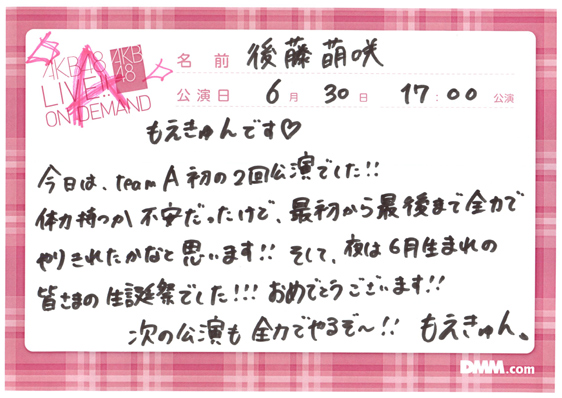 AKB48
LIVE!!
ON DEMAND
AKB
48
A
名前 後藤萌咲
公演日 6月30日 17:00公演
もえきゅんです♡
今日は、teamA初の2回公演でした!!
体力持つか不安だったけど、最初から最後まで全力で
やりきれたかなと思います!! そして、夜は6月生まれの
皆さまの生誕祭でした!!! おめでとうございます!!
次の公演も全力でやるぞ〜!! もえきゅん。
DMM.com